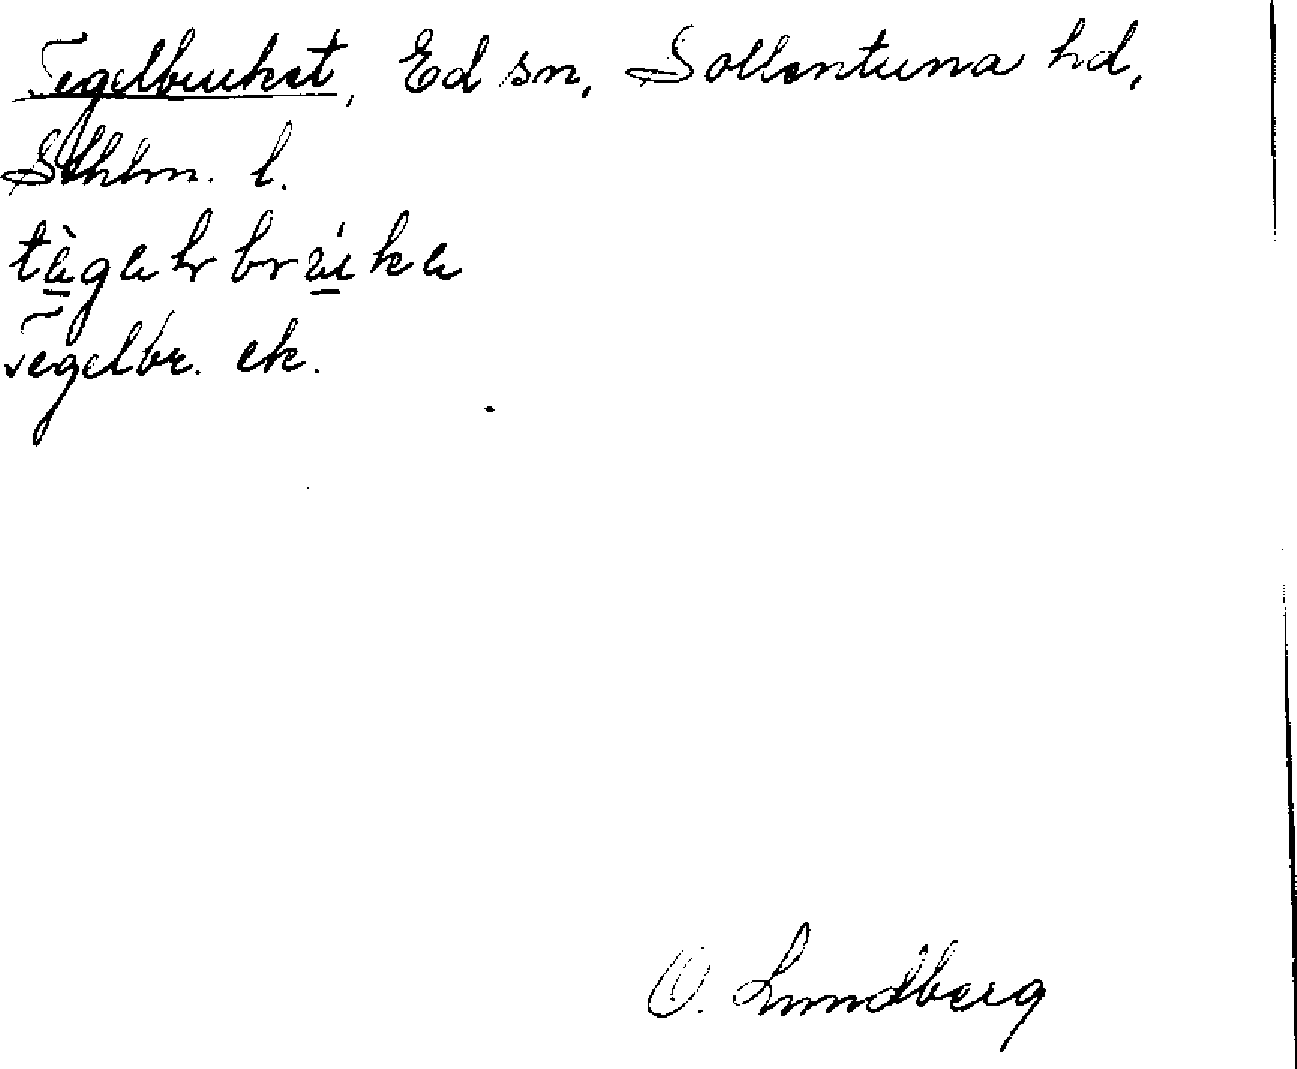 Tegelbruket, Ed sn, Sollentuna hd,
Sthlm. l.
Tegelbr. ek.
O. Lundberg